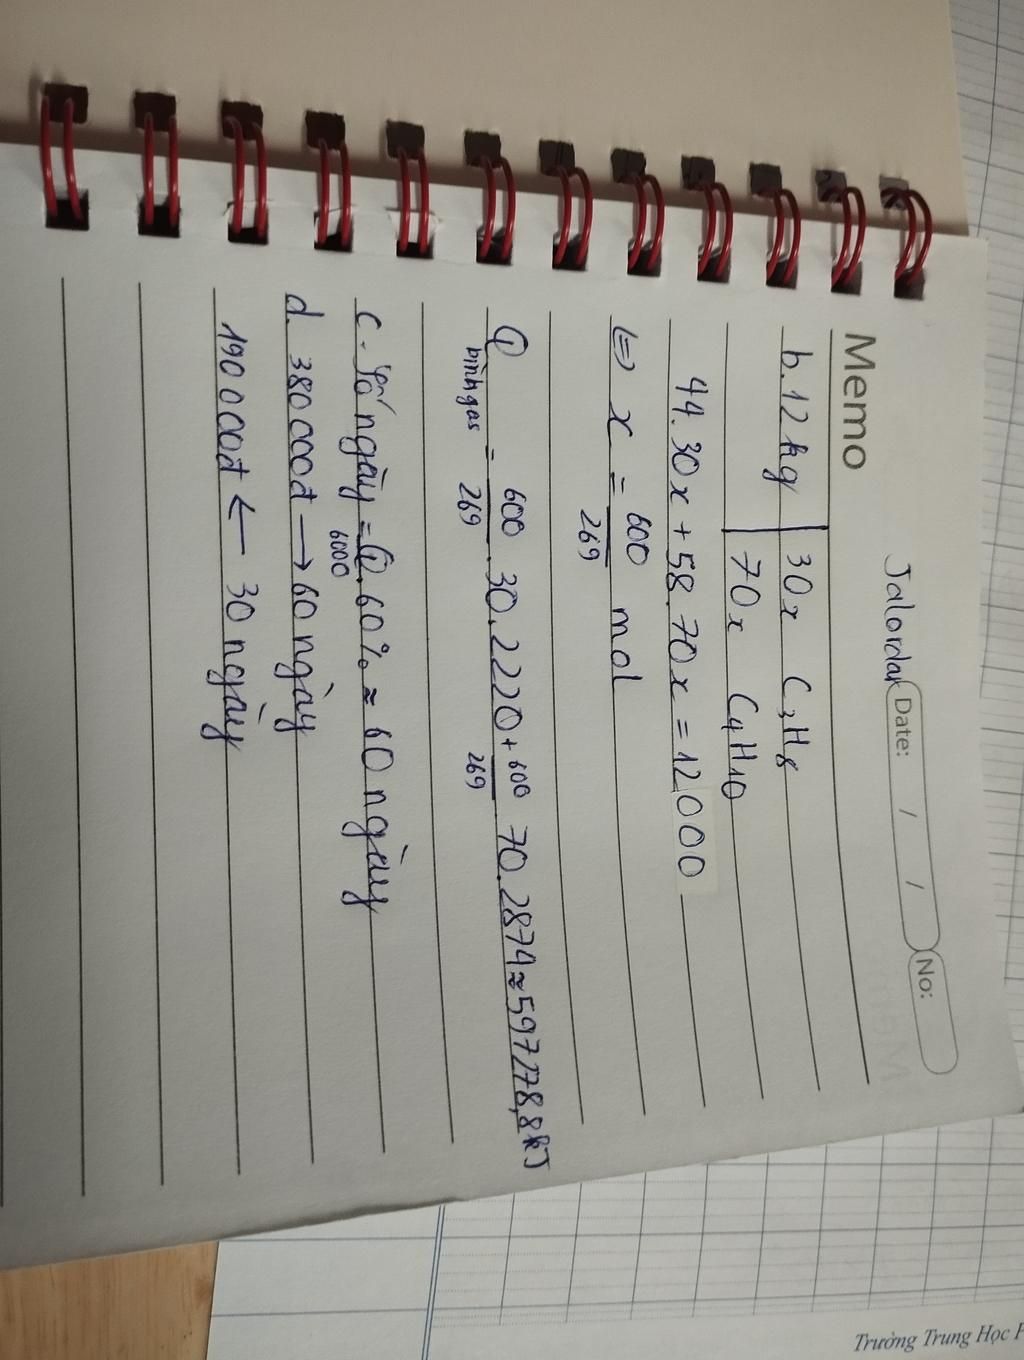 Memo
Date: / / No:
b. 12 kg | 30x C3H8
70x C4H10
44.30x + 58.70x = 12000
(=) x = 600/269 mol
Q bình gas = 600/269 . 30.2220 + 600/269 70.2874 ≈ 597278,8 kJ
c. Số ngày = Q.60%/6000 ≈ 60 ngày
d. 380 000đ → 60 ngày
190 000đ ← 30 ngày
Trường Trung Học